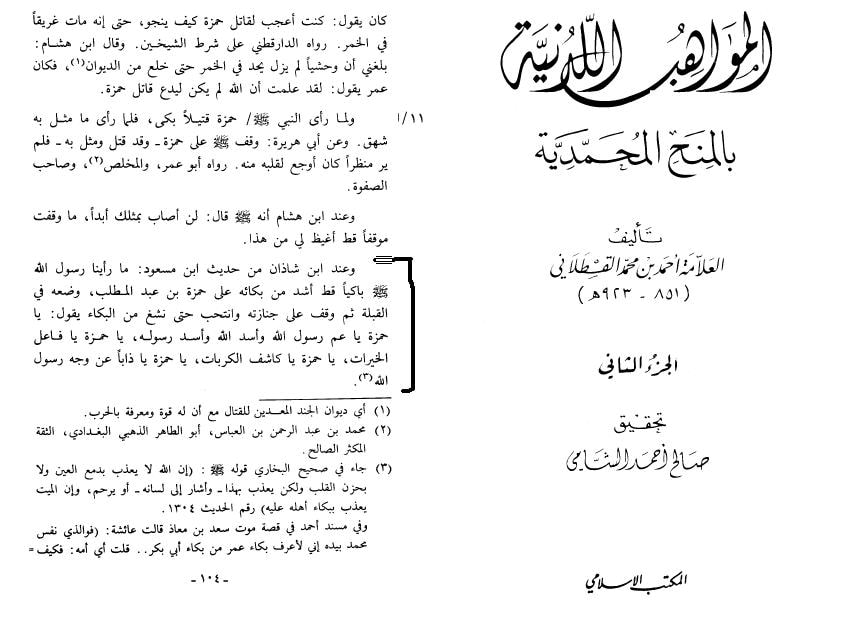 المواهب اللدنية
بالمنح المحمدية
تأليف
العلامة أحمد بن محمد القسطلاني
(٨٥١ - ٩٢٣هـ)
الجزء الثاني
تحقيق
صالح أحمد الشامي
المكتب الإسلامي
كان يقول: كنت أعجب لقاتل حمزة كيف ينجو، حتى إنه مات غريقاً
في الخمر. رواه الدارقطني على شرط الشيخين. وقال ابن هشام:
بلغني أن وحشياً لم يزل يحد في الخمر حتى خلع من الديوان(١)، فكان
عمر يقول: لقد علمت أن الله لم يكن ليدع قاتل حمزة.
١١/أ ولما رأى النبي ﷺ/ حمزة قتيلاً بكى، فلما رأى ما مثل به
شهق. وعن أبي هريرة: وقف ﷺ على حمزة ـ وقد قتل ومثل به ـ فلم
ير منظراً كان أوجع لقلبه منه. رواه أبو عمر، والمخلص(٢)، وصاحب
الصفوة.
وعند ابن هشام أنه ﷺ قال: لن أصاب بمثلك أبداً، ما وقفت
موقفاً قط أغيظ لي من هذا.
وعند ابن شاذان من حديث ابن مسعود: ما رأينا رسول الله
ﷺ باكياً قط أشد من بكائه على حمزة بن عبد المطلب، وضعه في
القبلة ثم وقف على جنازته وانتحب حتى نشغ من البكاء يقول: يا
حمزة يا عم رسول الله وأسد الله وأسد رسوله، يا حمزة يا فاعل
الخيرات، يا حمزة يا كاشف الكربات، يا حمزة يا ذاباً عن وجه رسول
الله(٣).
(١) أي ديوان الجند المعدين للقتال مع أن له قوة ومعرفة بالحرب.
(٢) محمد بن عبد الرحمن بن العباس، أبو الطاهر الذهبي البغدادي، الثقة
المكثر الصالح.
(٣) جاء في صحيح البخاري قوله ﷺ: (إن الله لا يعذب بدمع العين ولا
بحزن القلب ولكن يعذب بهذا ـ وأشار إلى لسانه ـ أو يرحم، وإن الميت
يعذب ببكاء أهله عليه) رقم الحديث ١٣٠٤.
وفي مسند أحمد في قصة موت سعد بن معاذ قالت عائشة: (فوالذي نفس
محمد بيده إني لأعرف بكاء عمر من بكاء أبي بكر.. قلت أي أمه: فكيف =
- ١٠٤ -